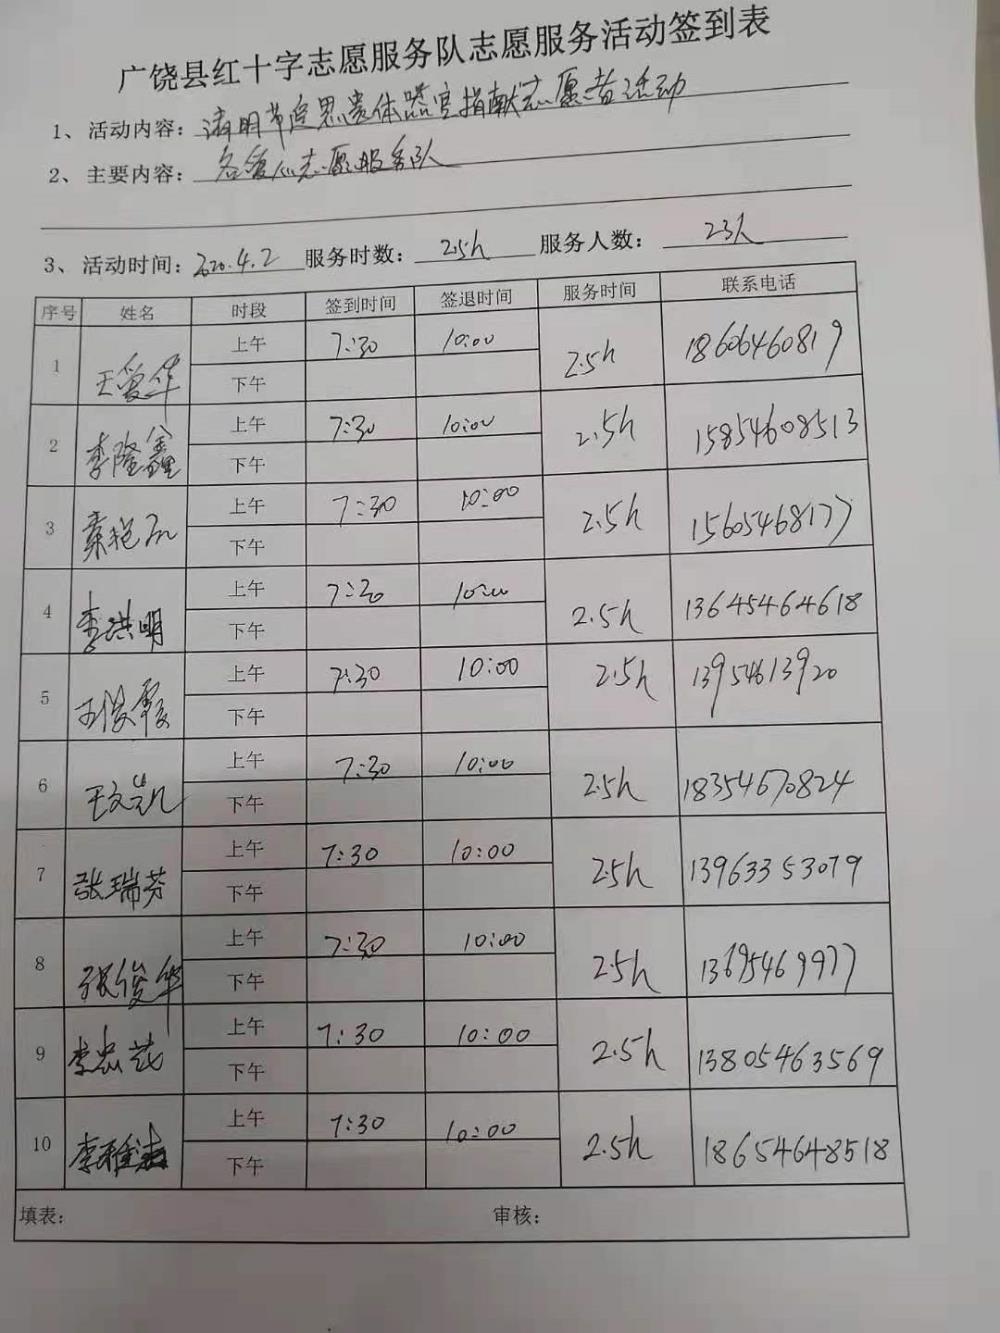 广饶县红十字志愿服务队志愿服务活动签到表
1、活动内容：清明节追思遗体器官捐献志愿者活动
2、主要内容：各爱心志愿服务队
3、活动时间：2020.4.2 服务时数：2.5h 服务人数：23人
序号 姓名 时段 签到时间 签退时间 服务时间 联系电话
1 王爱华 上午 7:30 10:00 2.5h 18606460819
下午
2 李隆鑫 上午 7:30 10:00 2.5h 15854608513
下午
3 上午 7:30 10:00 2.5h 15605468177
下午
4 李洪明 上午 7:30 10:00 2.5h 13645464618
下午
5 王俊霞 上午 7:30 10:00 2.5h 13954613920
下午
6 王文凯 上午 7:30 10:00 2.5h 18354670824
下午
7 张瑞芳 上午 7:30 10:00 2.5h 13963353079
下午
8 张俊华 上午 7:30 10:00 2.5h 13695469977
下午
9 上午 7:30 10:00 2.5h 13805463569
下午
10 上午 7:30 10:00 2.5h 18654648518
下午
填表： 审核：